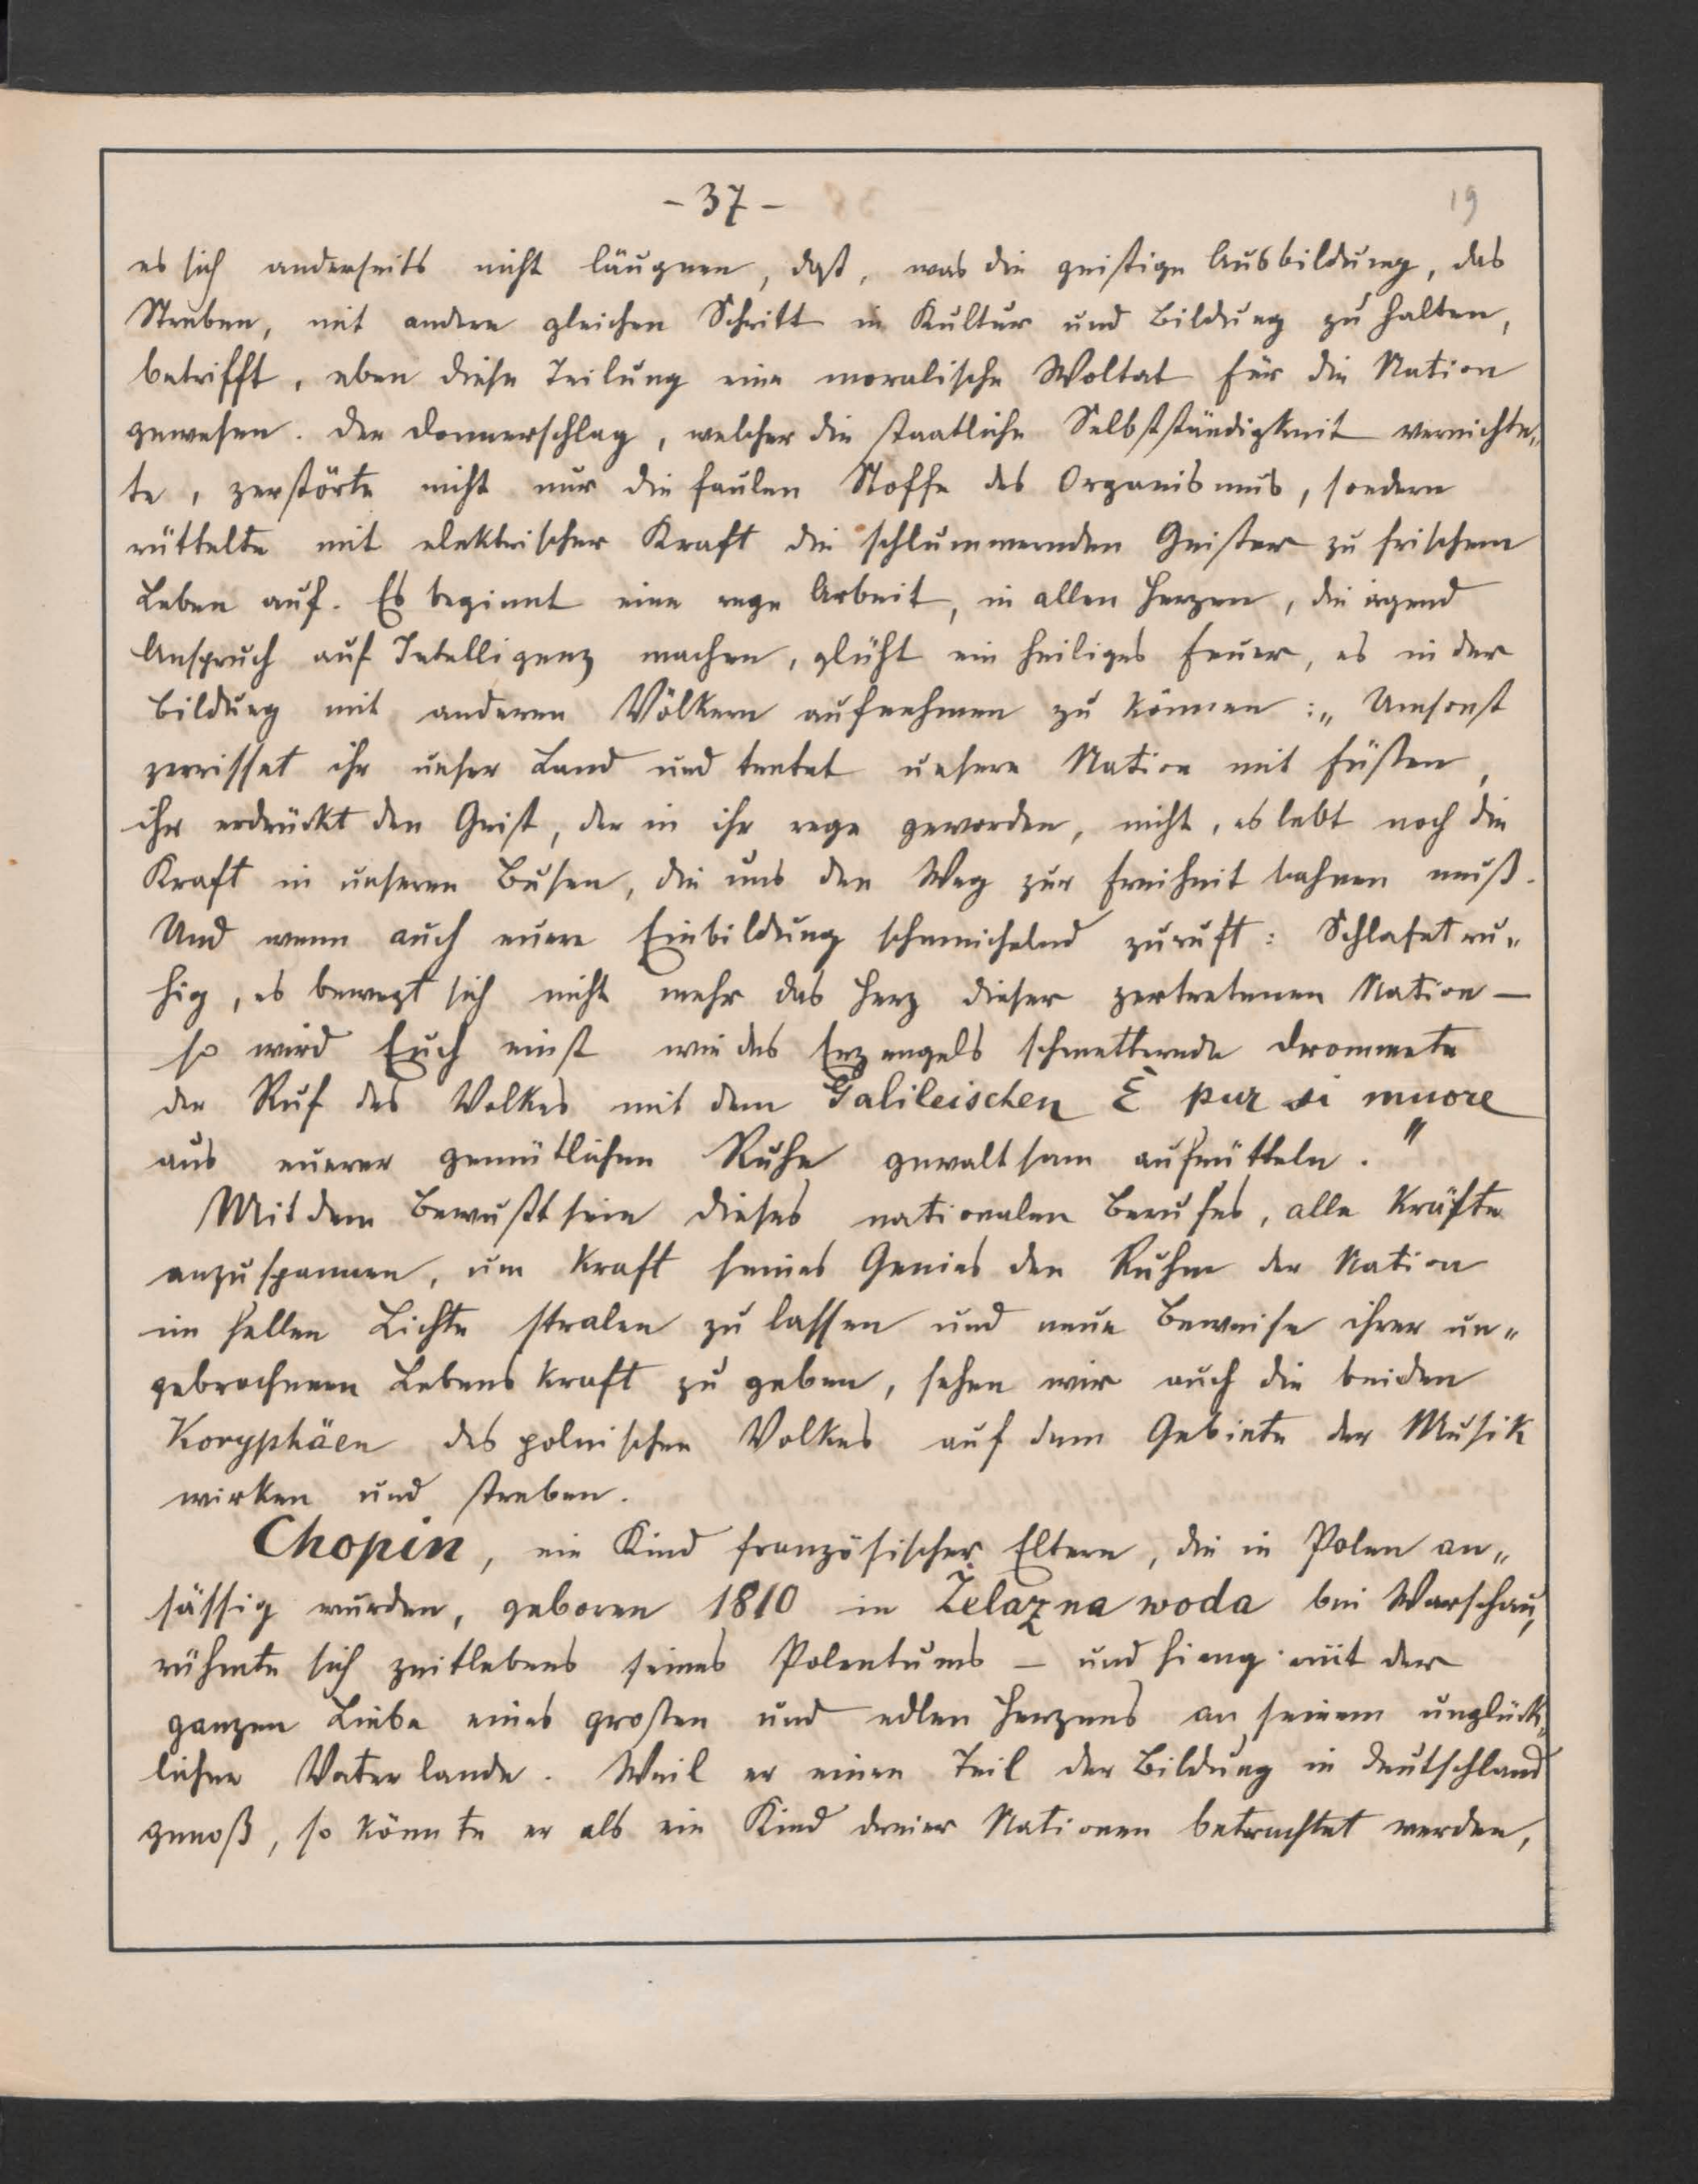 - 37 -
19
es sich anderseits nicht läugnen, daß, was die geistige Ausbildung, das
Streben, mit andern gleichen Schritt in Kultur und Bildung zu halten,
betrifft, eben diese Teilung eine moralische Woltat für die Nation
gewesen. Der Donnerschlag, welcher die staatliche Selbstständigkeit vernichte„
te, zerstörte nicht nur die faulen Stoffe des Organismus, sondern
rüttelte mit elektrischer Kraft die schlummernden Geister zu frischem
Leben auf. Es beginnt eine rege Arbeit, in allen Herzen, die irgend
Anspruch auf Intelligenz machen, glüht ein heiliges Feuer, es in der
Bildung mit anderen Völkern aufnehmen zu können: „Umsonst
zerrisset ihr unser Land und tretet unsere Nation mit Füßen,
ihr erdrückt den Geist, der in ihr rege geworden, nicht, es lebt noch die
Kraft in unseren Busen, die uns den Weg zur Freiheit bahnen muß.
Und wenn auch euere Einbildung schmeichelnd zuruft: Schlafet ru„
hig, es bewegt sich nicht mehr das Herz dieser zertretenen Nation —
so wird Euch einst wie des Erzengels schmetternde Drommete
der Ruf des Volkes mit dem Galileischen È pur si muore
aus euerer gemütlichen Ruhe gewaltsam aufrütteln."
Mit dem Bewußtsein dieses nationalen Berufes, alle Kräfte
anzuspannen, um kraft seines Genies den Ruhm der Nation
im hellen Lichte stralen zu lassen und neue Beweise ihrer un„
gebrochenen Lebenskraft zu geben, sehen wir auch die beiden
Koryphäen des polnischen Volkes auf dem Gebiete der Musik
wirken und streben.
Chopin, ein Kind französischer Eltern, die in Polen an„
sässig wurden, geboren 1810 in Żelazna woda bei Warschau,
rühmte sich zeitlebens seines Polentums — und hieng mit der
ganzen Liebe eines großen und edlen Herzens an seinem unglück„
lichen Vaterlande. Weil er einen Teil der Bildung in Deutschland
genoß, so könnte er als ein Kind dreier Nationen betrachtet werden,